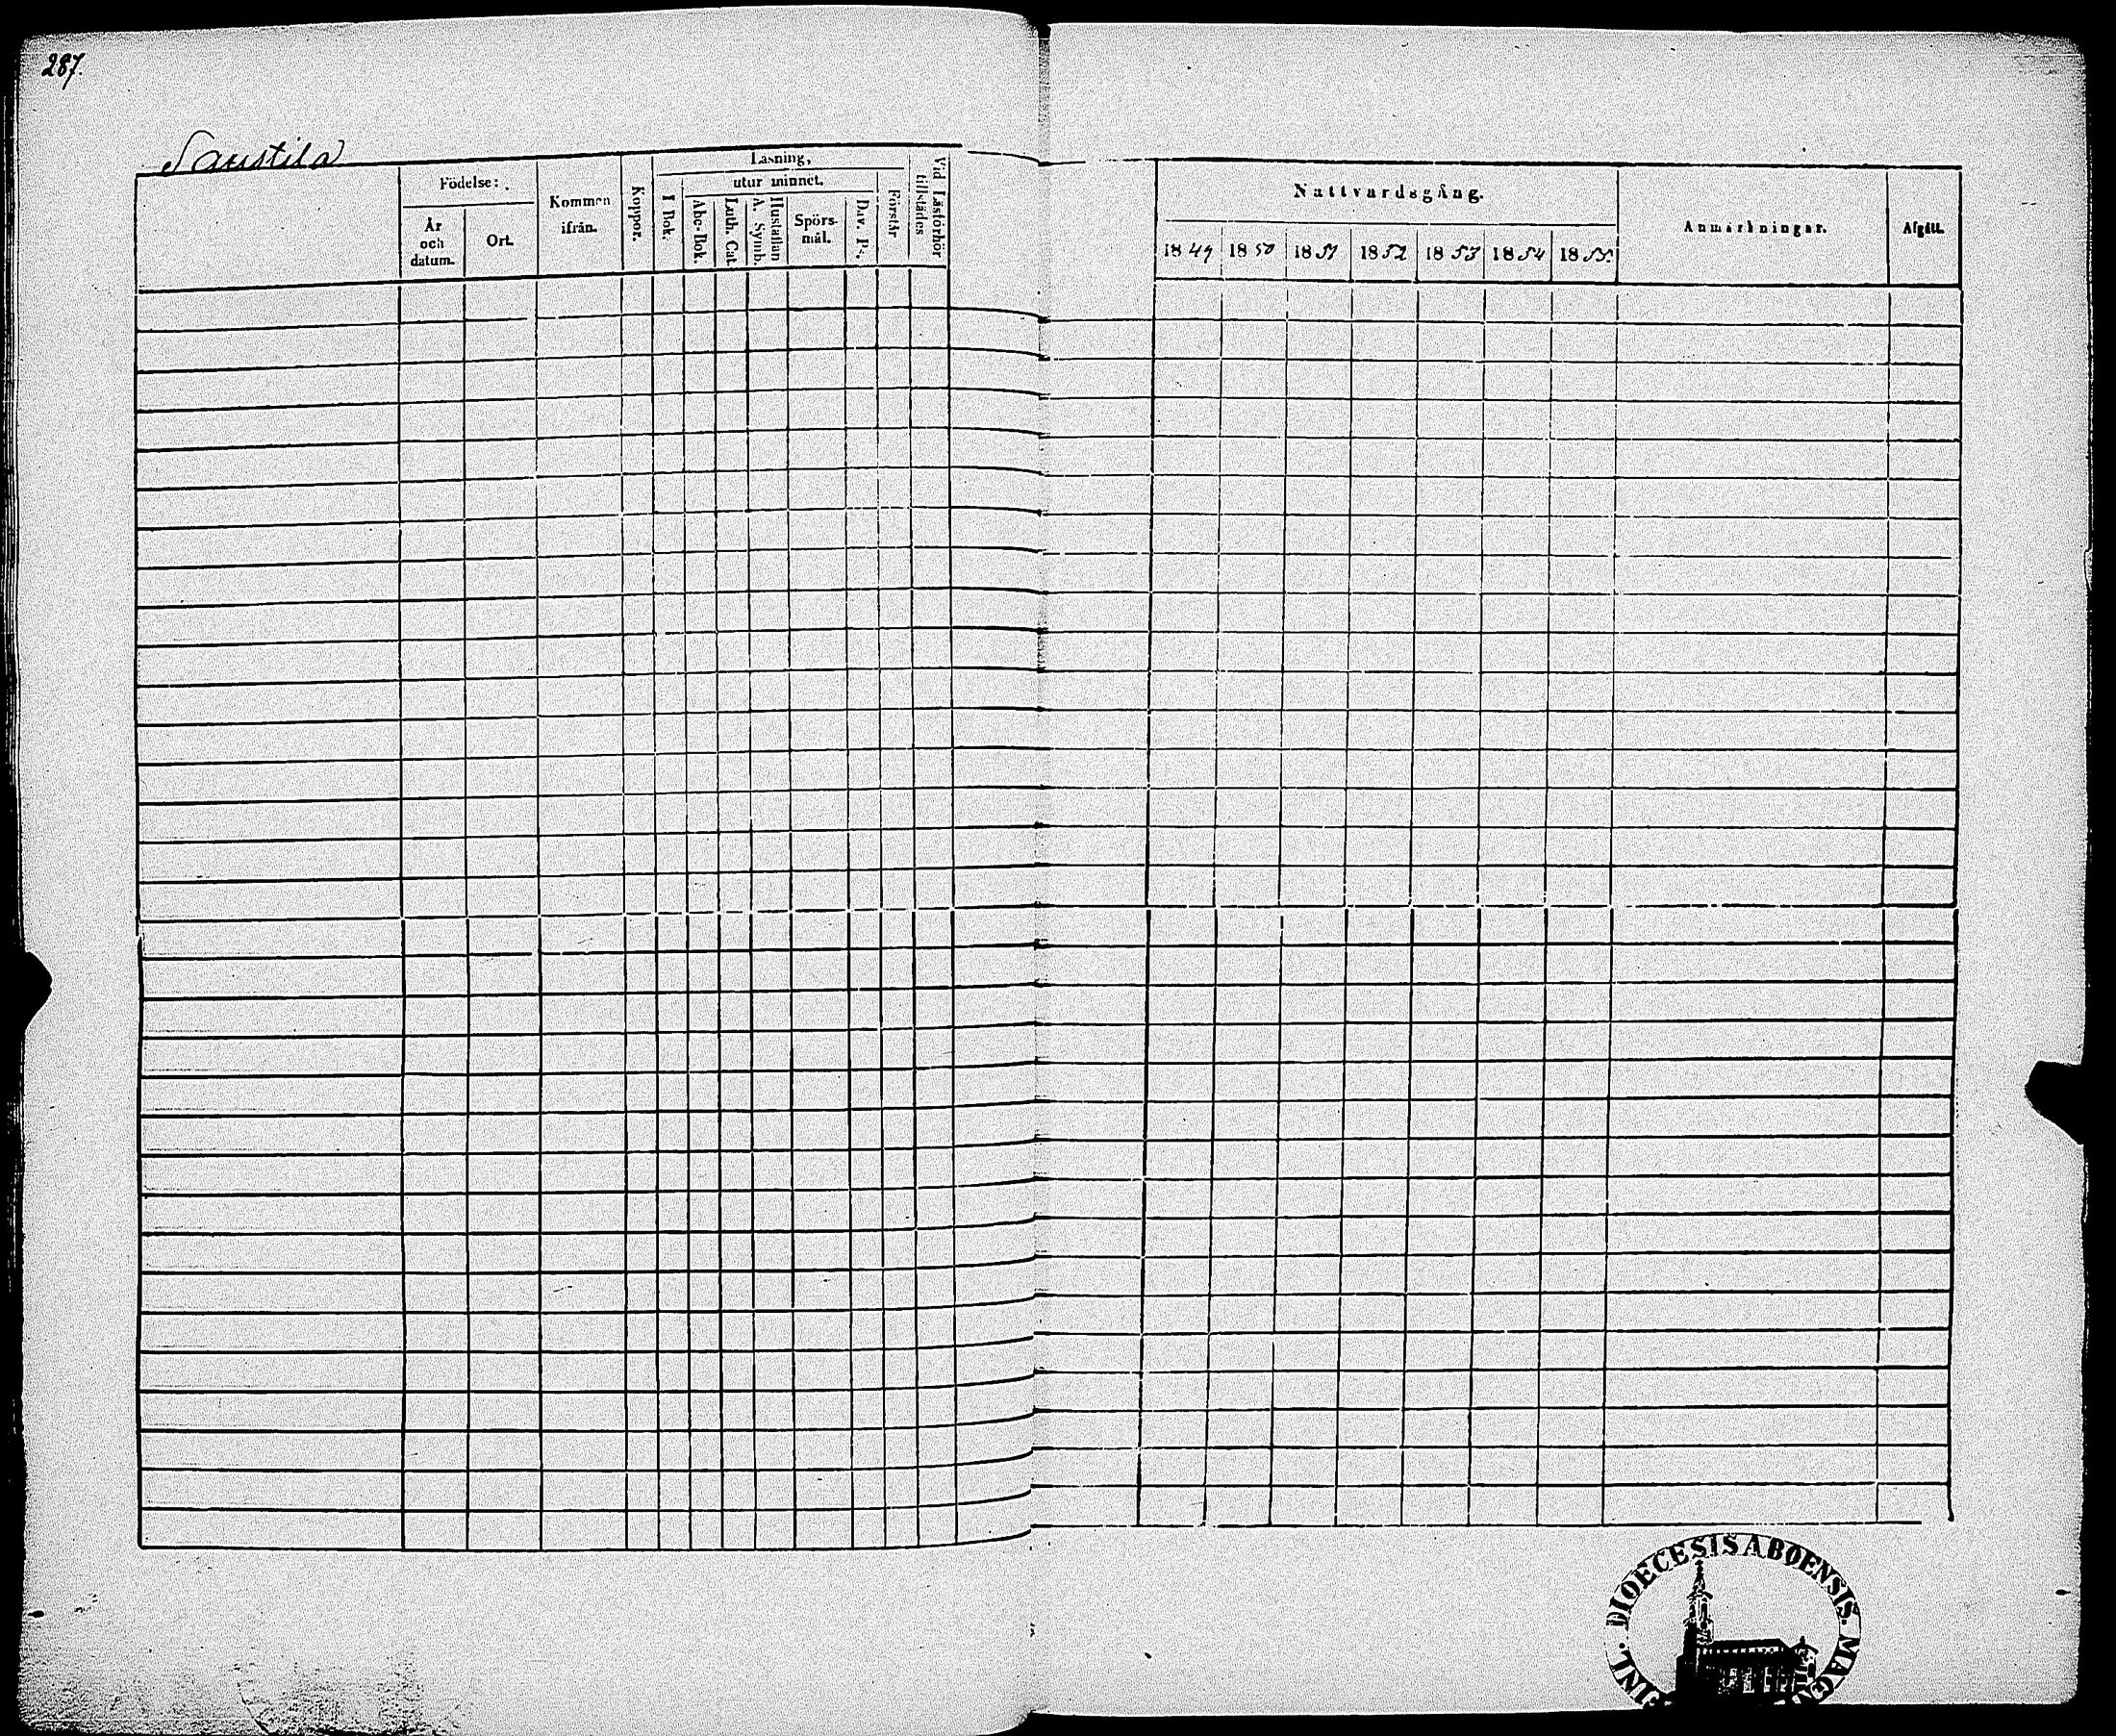 287.
Saustila
Födelse:
År och datum.
Ort.
Kommen ifrån.
Koppor.
Läsning,
I Bok.
utur minnet.
Abc-Bok.
Luth. Cat.
Hustaflan A. Symb.
Spörsmål.
Dav. Ps.
Förstår
Vid Läsförhör tillstädes
Nattvardsgång.
1849 1850 1851 1852 1853 1854 1855.
Anmärkningar.
Afgått.
DIOECESIS ABOENSIS. MAG
FINL.